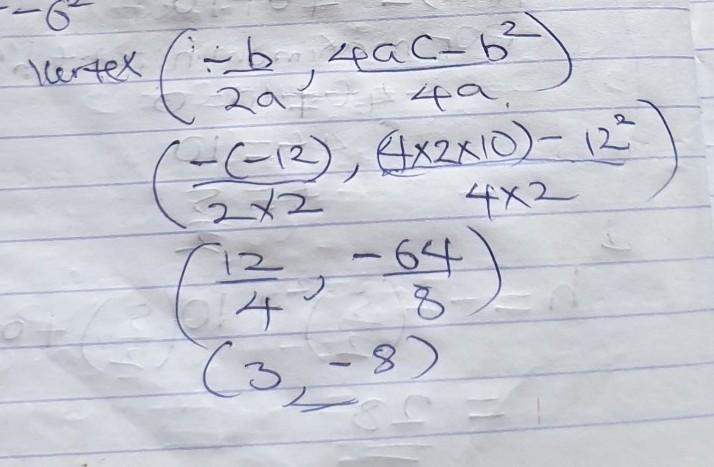 --6²
Vertex (-b/2a, 4ac-b²/4a)
(-(-12)/2×2, (4×2×10)-12²/4×2)
(12/4, -64/8)
(3, -8)